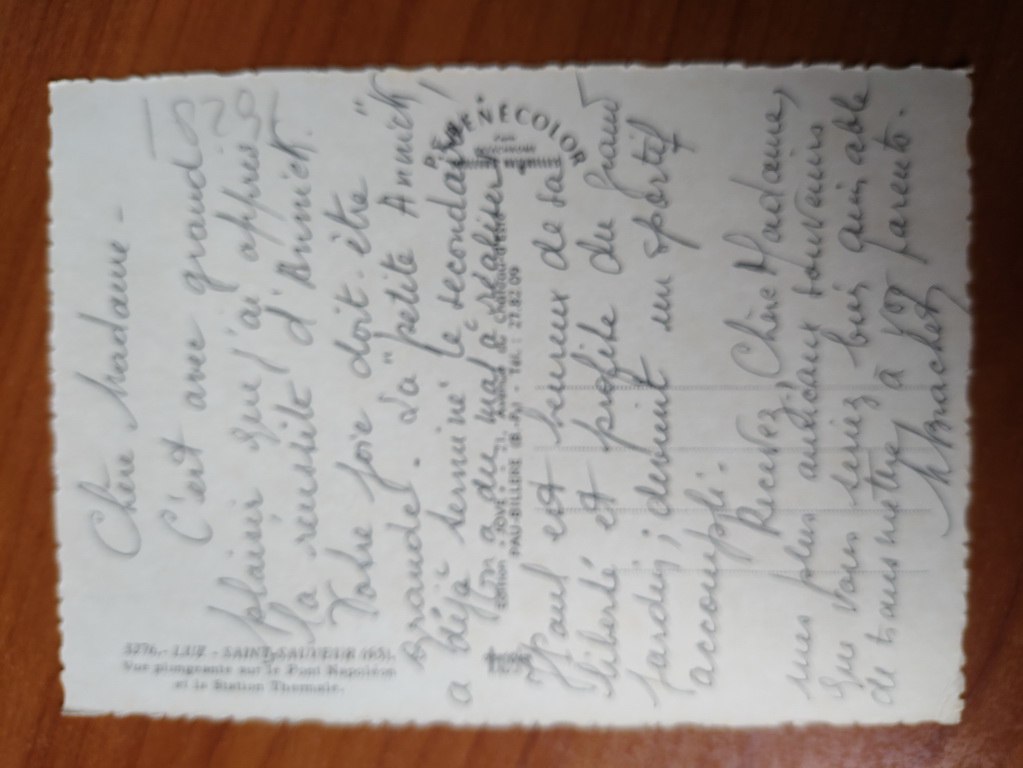 5276.- LUZ - SAINT-SAUVEUR (65).
Vue plongeante sur le Pont Napoléon
et la Station Thermale.
Chère Madame -
C'est avec grand
plaisir que j'ai appris
la réussite d'Annick.
Votre joie doit être
grande. La "petite Annick"
a déjà terminé le secondaire,
on a du mal à réaliser.
Paul est heureux de sa
liberté et profite du grand
jardin ; devient un sportif
accompli.
Recevez, Chère Madame,
mes plus amicaux souvenirs
que vous serez bien aimable
de transmettre à vos parents.
Brachet
PYRÉNÉCOLOR
Edition
PAU-BILLÈRE (B.-P.) - Tél. : 27.82.09